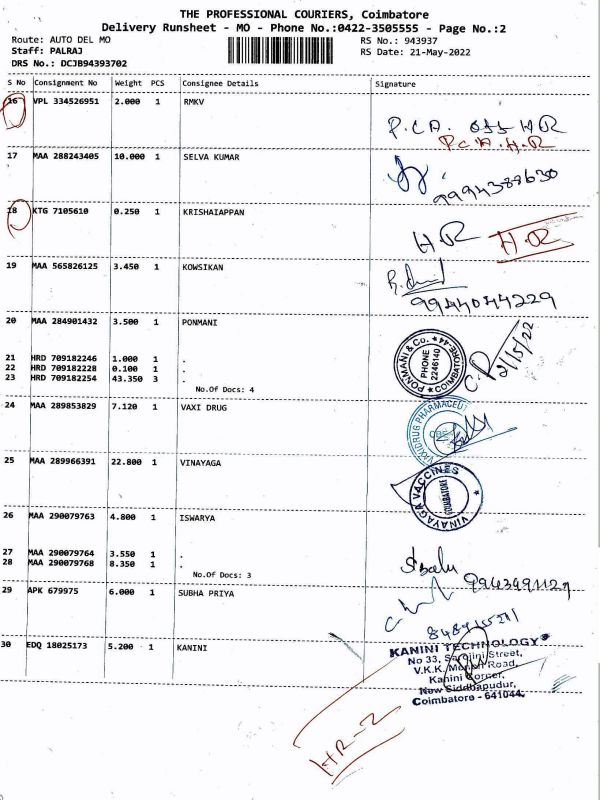 THE PROFESSIONAL COURIERS, Coimbatore
Delivery Runsheet - MO - Phone No.:0422-3505555 - Page No.:2
Route: AUTO DEL MO
RS No.: 943937
Staff: PALRAJ
RS Date: 21-May-2022
DRS No.: DCJB94393702
S No Consignment No Weight PCS Consignee Details Signature
16 VPL 334526951 2.000 1 RMKV
P.C.A. OFF HR
P.C.A.H.R
17 MAA 288243405 10.000 1 SELVA KUMAR
18 KTG 7105610 0.250 1 KRISHAIAPPAN
H.R H.R
19 MAA 565826125 3.450 1 KOWSIKAN
9944044229
20 MAA 284901432 3.500 1 PONMANI
PONMANI & Co. COIMBATORE-44
PHONE
2246140
21/5/22
21 HRD 709182246 1.000 1 .
22 HRD 709182228 0.100 1 .
23 HRD 709182254 43.350 3 .
No.Of Docs: 4
24 MAA 289853829 7.120 1 VAXI DRUG
25 MAA 289966391 22.800 1 VINAYAGA
VINAYAGA VACCINES
COIMBATORE
26 MAA 290079763 4.800 1 ISWARYA
27 MAA 290079764 3.550 1 .
28 MAA 290079768 8.350 1 .
No.Of Docs: 3
29 APK 679975 6.000 1 SUBHA PRIYA
30 EDQ 18025173 5.200 1 KANINI
KANINI TECHNOLOGY
No 33, Sarojini Street,
V.K.K. Menon Road,
Kanini Corner,
New Siddhapudur,
Coimbatore - 641044.
HR-2